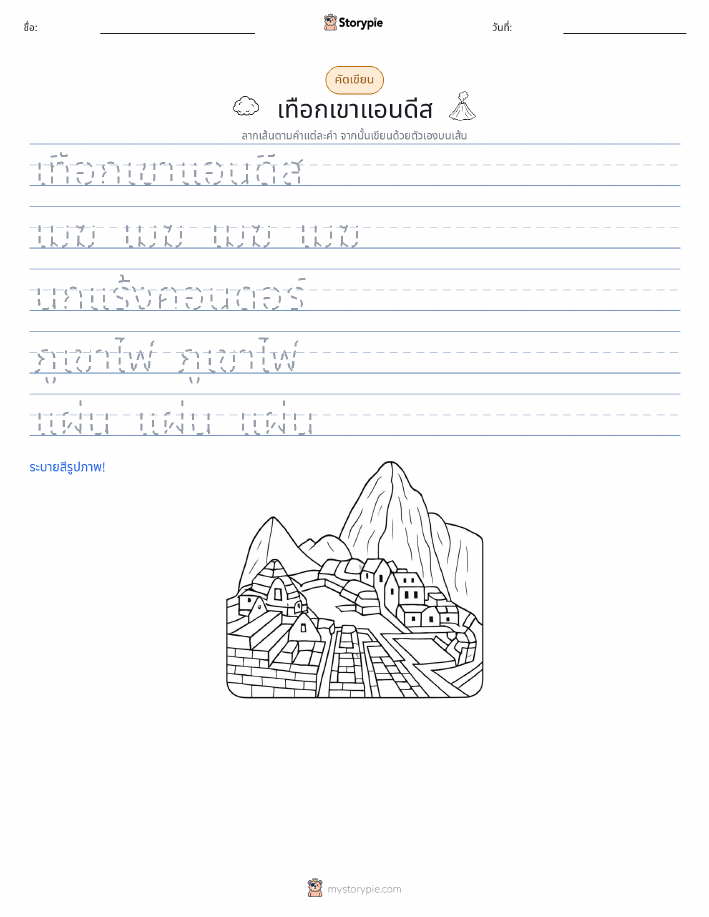 ชื่อ:
Storypie
วันที่:
คัดเขียน
เทือกเขาแอนดีส
ลากเส้นตามคำแต่ละคำ จากนั้นเขียนด้วยตัวเองบนเส้น
เทือกเขาแอนดีส
เมฆ เมฆ เมฆ เมฆ
นกแร้งคอนดอร์
ภูเขาไฟ ภูเขาไฟ
แผ่น แผ่น แผ่น
ระบายสีรูปภาพ!
mystorypie.com